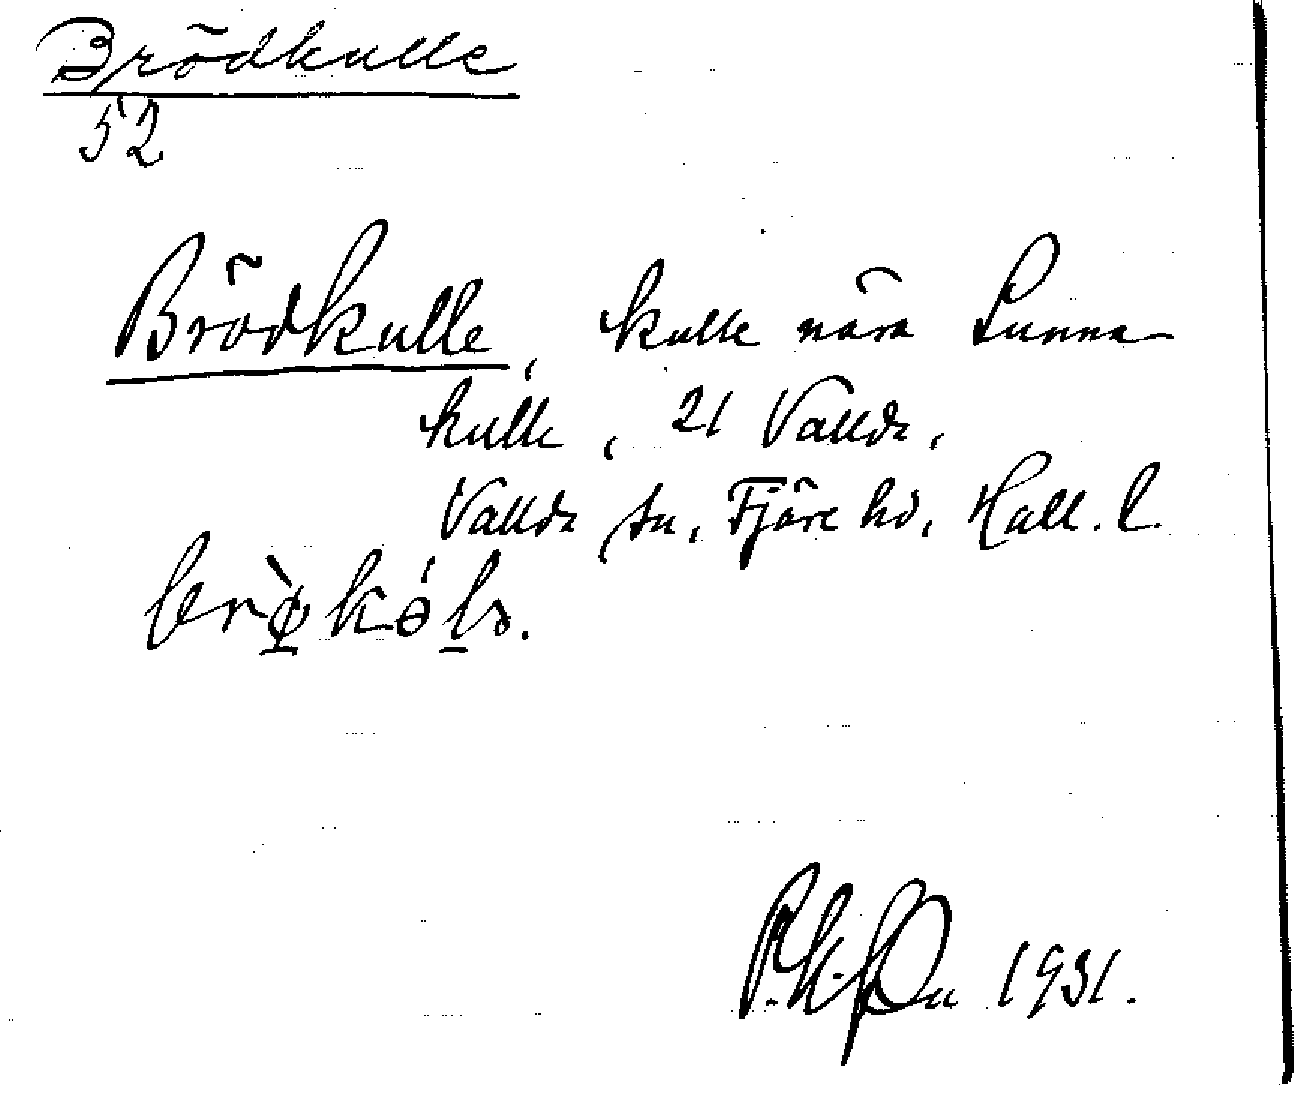 Brödkulle
52
Brödkulle, kulle nära Sunna-
kulle, 21 Vallda,
Vallda sn, Fjäre hd, Hall. l.
1931.